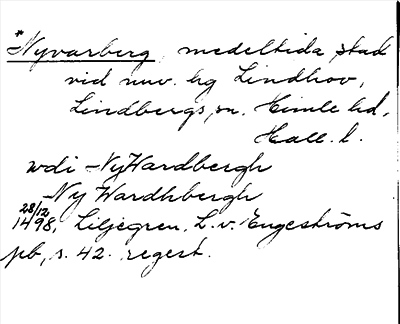 *Nyvarberg, medeltida stad
vid nuv. hg Lindhov,
Lindbergs sn. Himle hd,
Hall. l.
wdi Ny Wardbergh
Ny Wardhbergh
28/12
1498, Liljegren, L. v. Engeströms
pb, s. 42. regest.